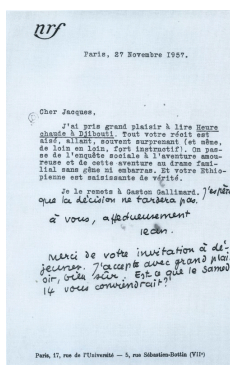 nrf
Paris, 27 Novembre 1957.
Cher Jacques,
J'ai pris grand plaisir à lire Heure
chaude à Djibouti. Tout votre récit est
aisé, allant, souvent surprenant (et même,
de loin en loin, fort instructif). On pas-
se de l'enquête sociale à l'aventure amou-
reuse et de cette aventure au drame fami-
lial sans gêne ni embarras. Et votre Ethio-
pienne est saisissante de vérité.
Je le remets à Gaston Gallimard. J'espère
que la décision ne tardera pas.
à vous, affectueusement
Jean.
Merci de votre invitation à dé-
jeuner. J'accepte avec grand plai
sir, bien sûr. Est ce que le samedi
14 vous conviendrait?
Paris, 17, rue de l'Université — 5, rue Sébastien-Bottin (VIIe)